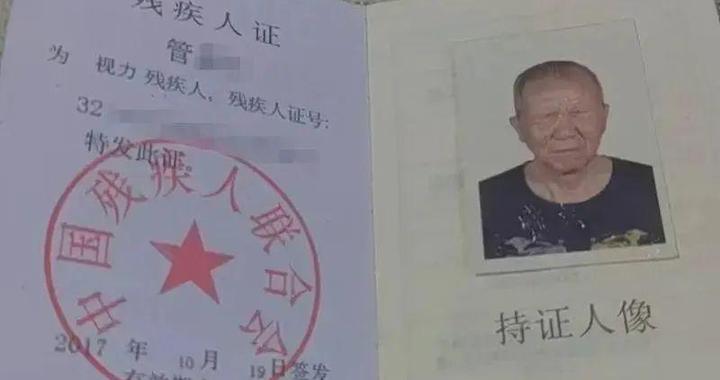 残疾人证
管
为 视力 残疾人，残疾人证号:
32
特发此证。
中国残疾人联合会
2017 年 10 月 19日签发
持证人像